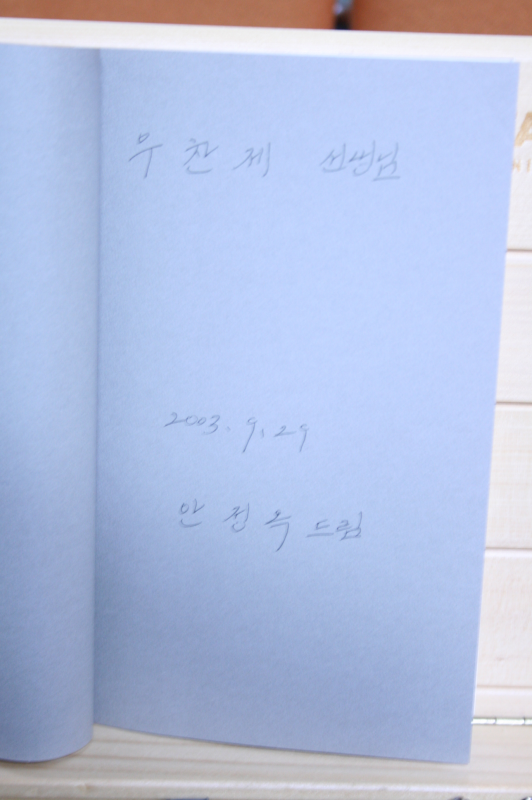 우찬제 선생님
2003. 9. 29
안정옥 드림